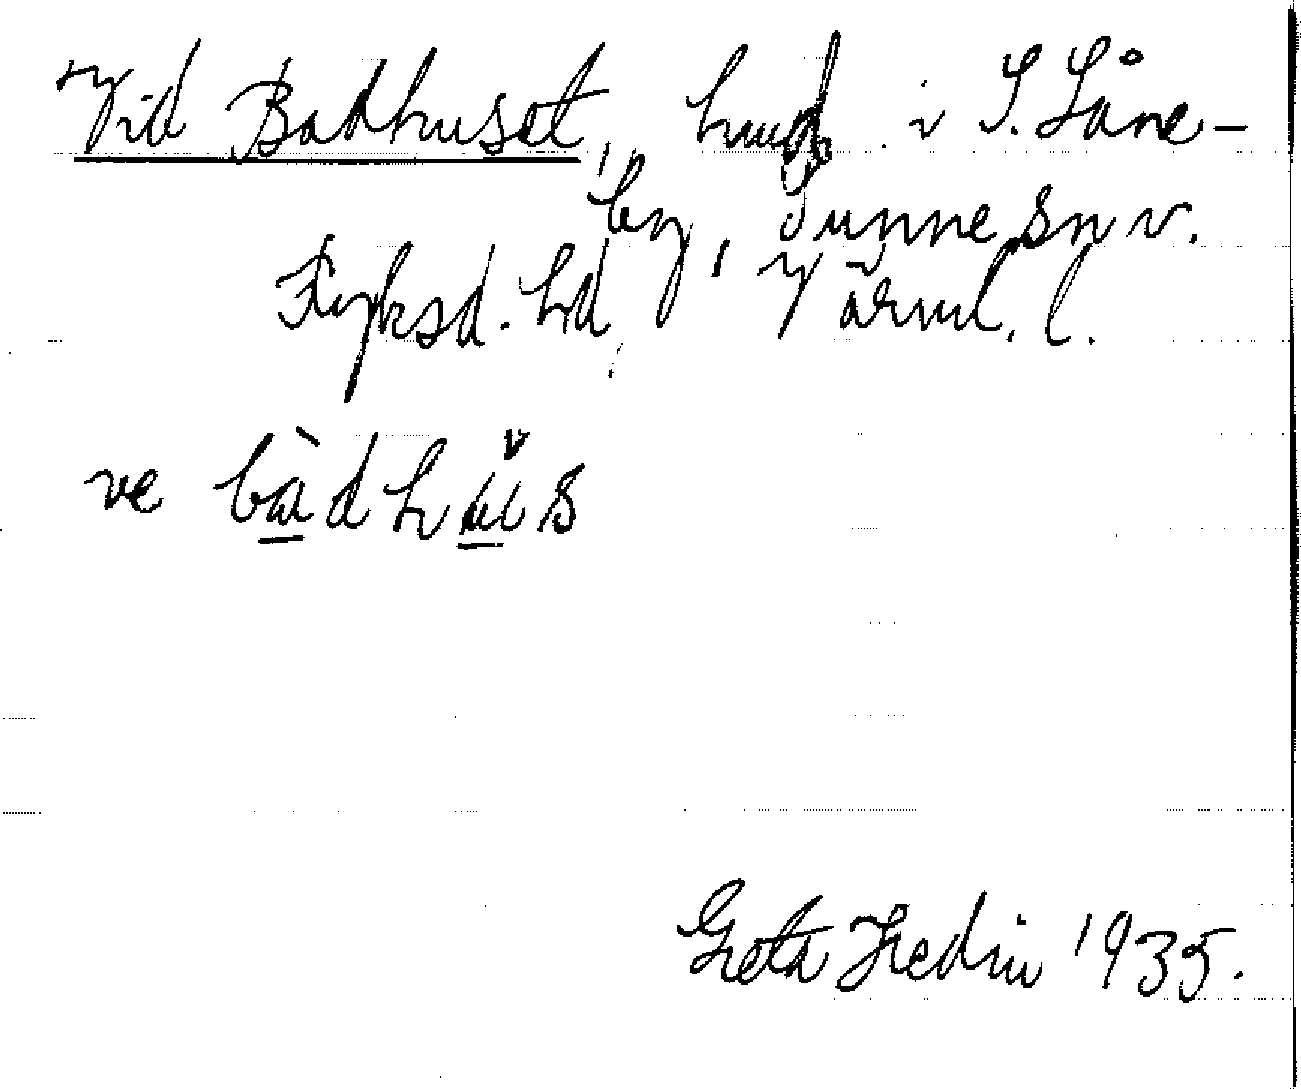 Vid Badhuset, i S. Låne-
by, Sunne sn v.
Fryksd. hd, Värml. l.
ve bàdhǔs
Greta Hedin 1935.